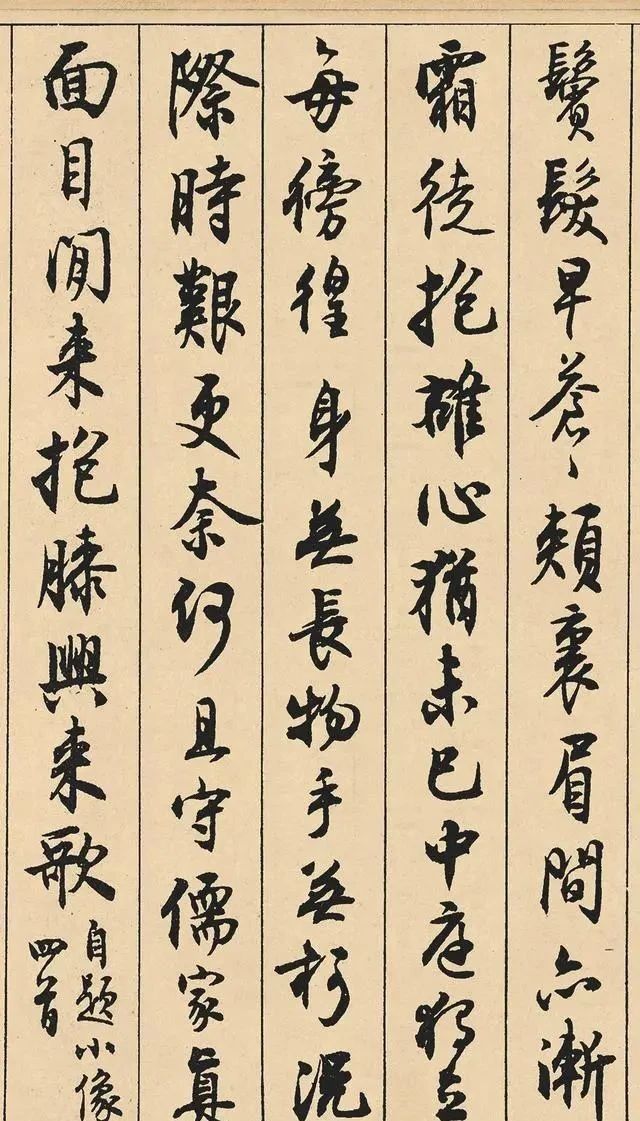 鬢髮早蒼々頰裏眉間亦漸
霜徒抱雄心猶未已中庭獨立
每徬徨身無長物手無柯況
際時艱更奈何且守儒家真
面目閒來抱膝興來歌
自題小像
四首